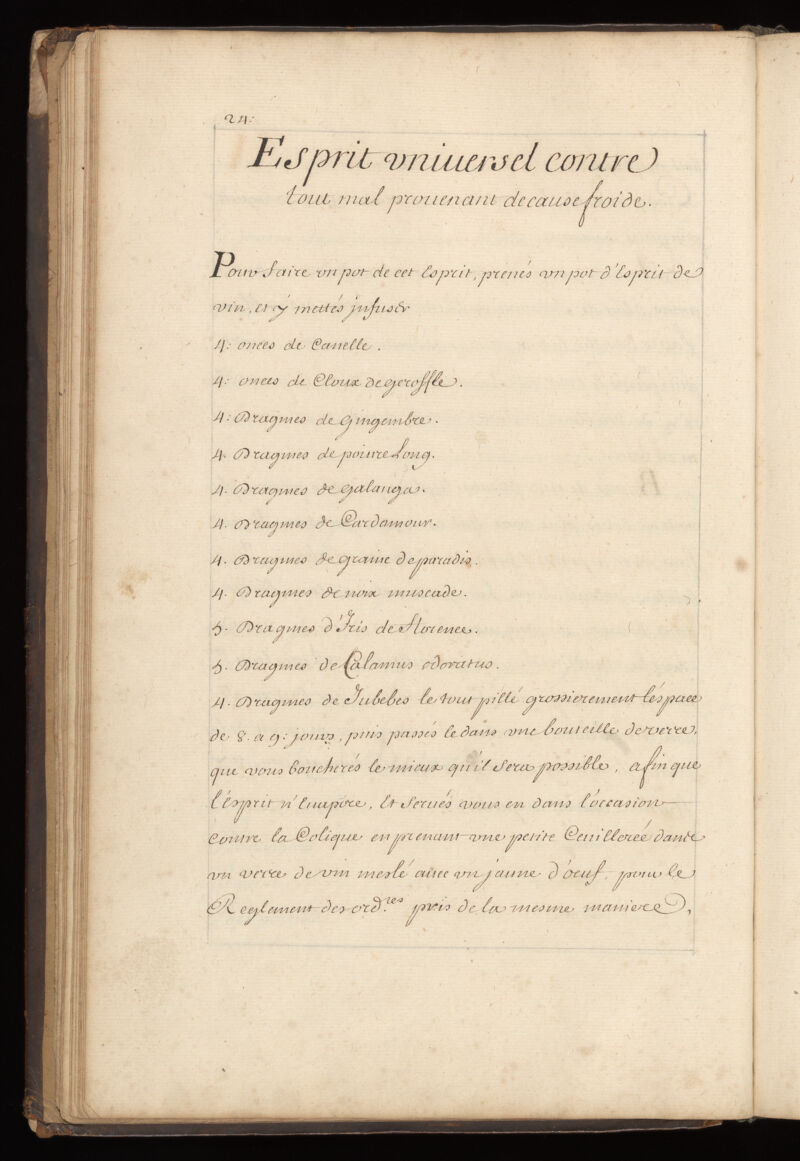 24.
Esprit vniuersel contre
tout mal prouenant de cause froide.
Pour faire vn pot de cet Esprit, prenés vn pot d'Esprit de
vin, et y mettés jnfuser
4: onces de Canelle.
4: onces de Cloux de geroffle.
4: Dragmes de gingembre.
4. Dragmes de poiure Long.
4. Dragmes de galanga.
4. Dragmes de Cardamour.
4. Dragmes de graine de paradis.
4. Dragmes de noix muscade.
5. Dragmes d'Iris de florence.
5. Dragmes de Calamus odoratus.
4. Dragmes de Jubebes le tout pillé grossierement lespace
de 8. a 9: jours, puis passés le dans vne bouteille de verre,
que vous boucherés le mieux qu'il sera possible, afin que
l'Esprit n'Euapore, Et serués vous en dans l'occasion
Contre la Colique en prenant vne petite Ceuillereé dans
vn verre de vin meslé auec vn jaune d'oeuf, pour le
Reglement des ord.res pris de la mesme maniere,